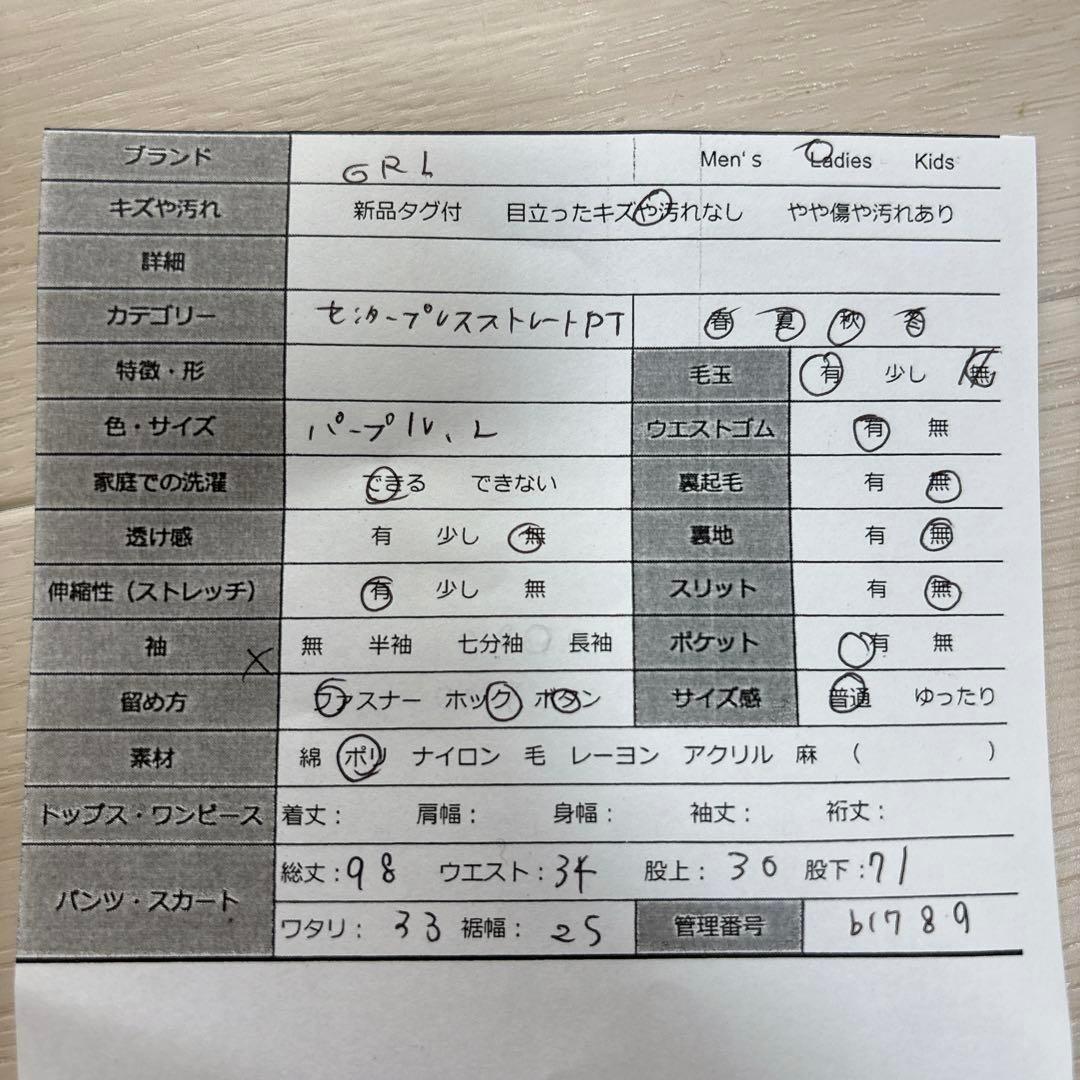 ブランド GRL Men's Ladies Kids
キズや汚れ 新品タグ付 目立ったキズや汚れなし やや傷や汚れあり
詳細
カテゴリー センタープレスストレートPT 春 夏 秋 冬
特徴・形 毛玉 有 少し 無
色・サイズ パープル、L ウエストゴム 有 無
家庭での洗濯 できる できない 裏起毛 有 無
透け感 有 少し 無 裏地 有 無
伸縮性（ストレッチ） 有 少し 無 スリット 有 無
袖 × 無 半袖 七分袖 長袖 ポケット 有 無
留め方 ファスナー ホック ボタン サイズ感 普通 ゆったり
素材 綿 ポリ ナイロン 毛 レーヨン アクリル 麻 （ ）
トップス・ワンピース 着丈： 肩幅： 身幅： 袖丈： 裄丈：
パンツ・スカート 総丈：98 ウエスト：34 股上：30 股下：71
ワタリ：33 裾幅：25 管理番号 b1789